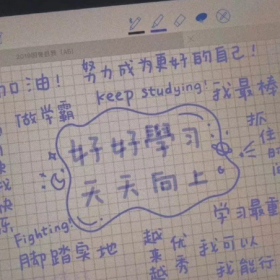 加油！ 努力成为更好的自己！
做学霸 keep studying! 我最棒
好好學习
天天向上
抓住时间
Fighting!
学习最重
脚踏实地
越来越优秀
我可以
我能行